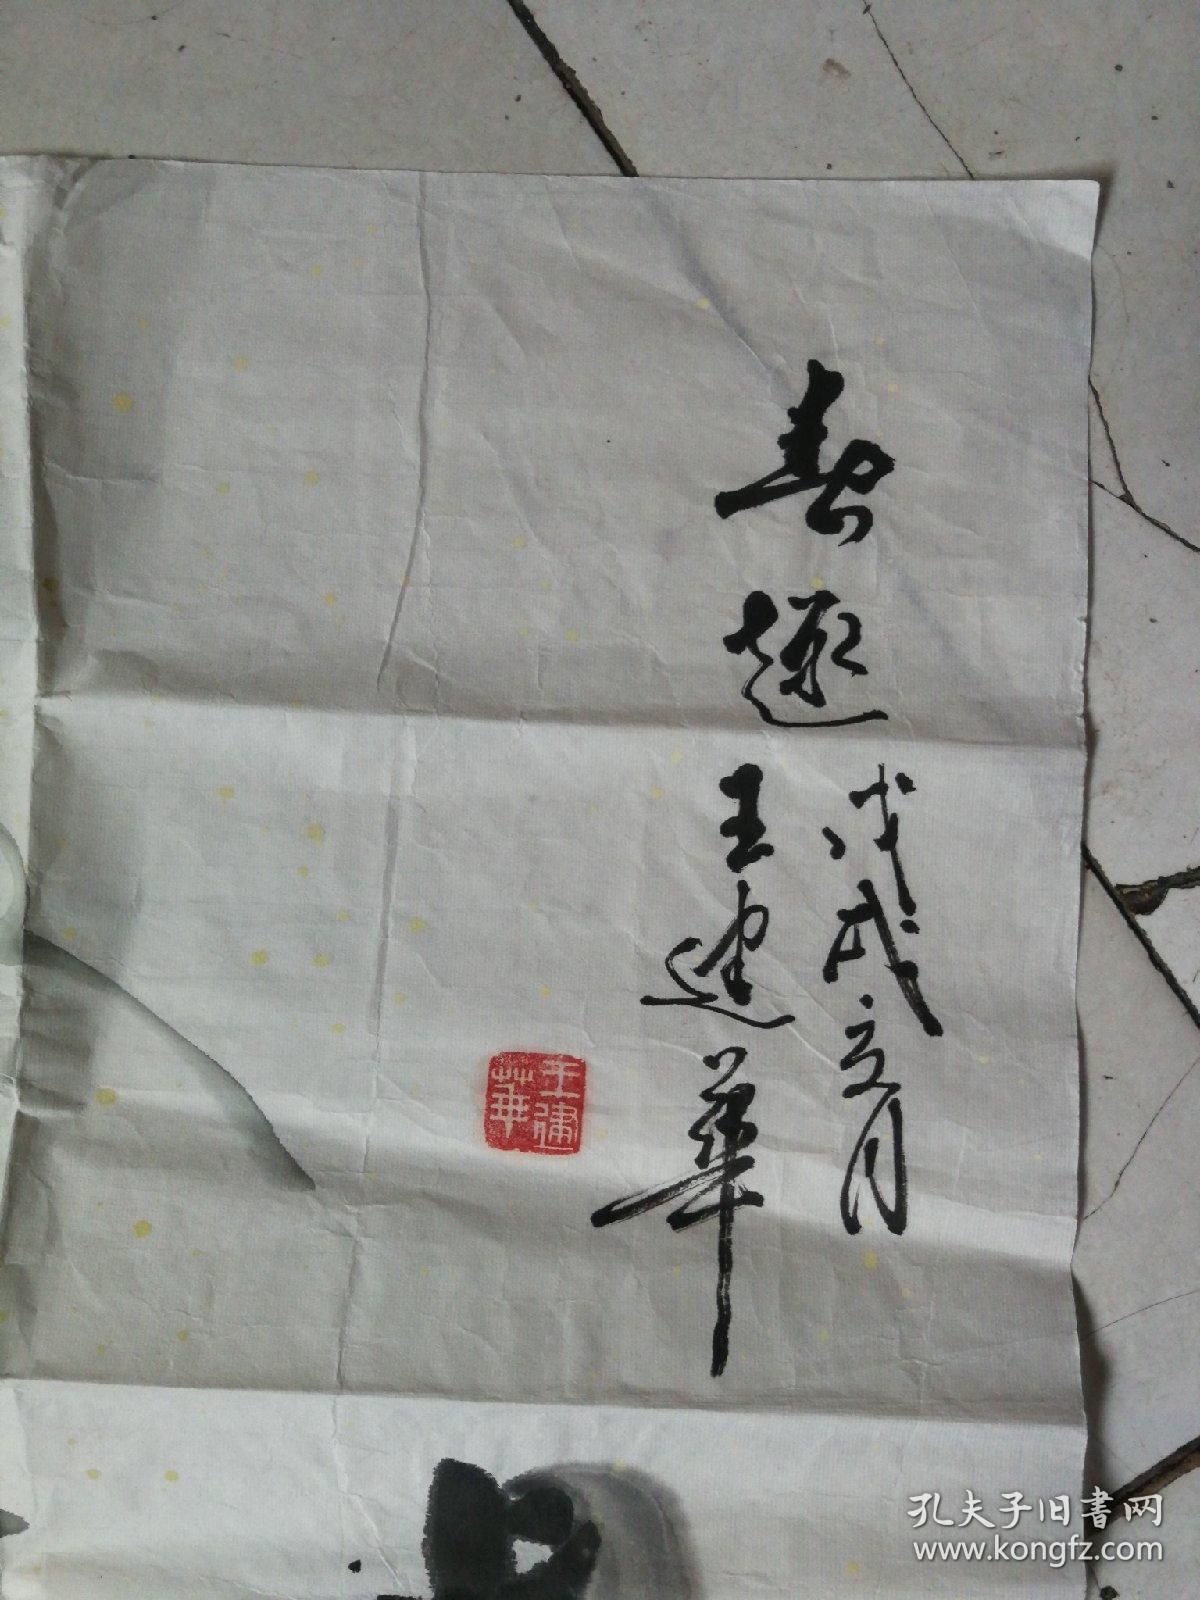 春趣
戊戌夏月
王建華
王建華
孔夫子旧書网
www.kongfz.com